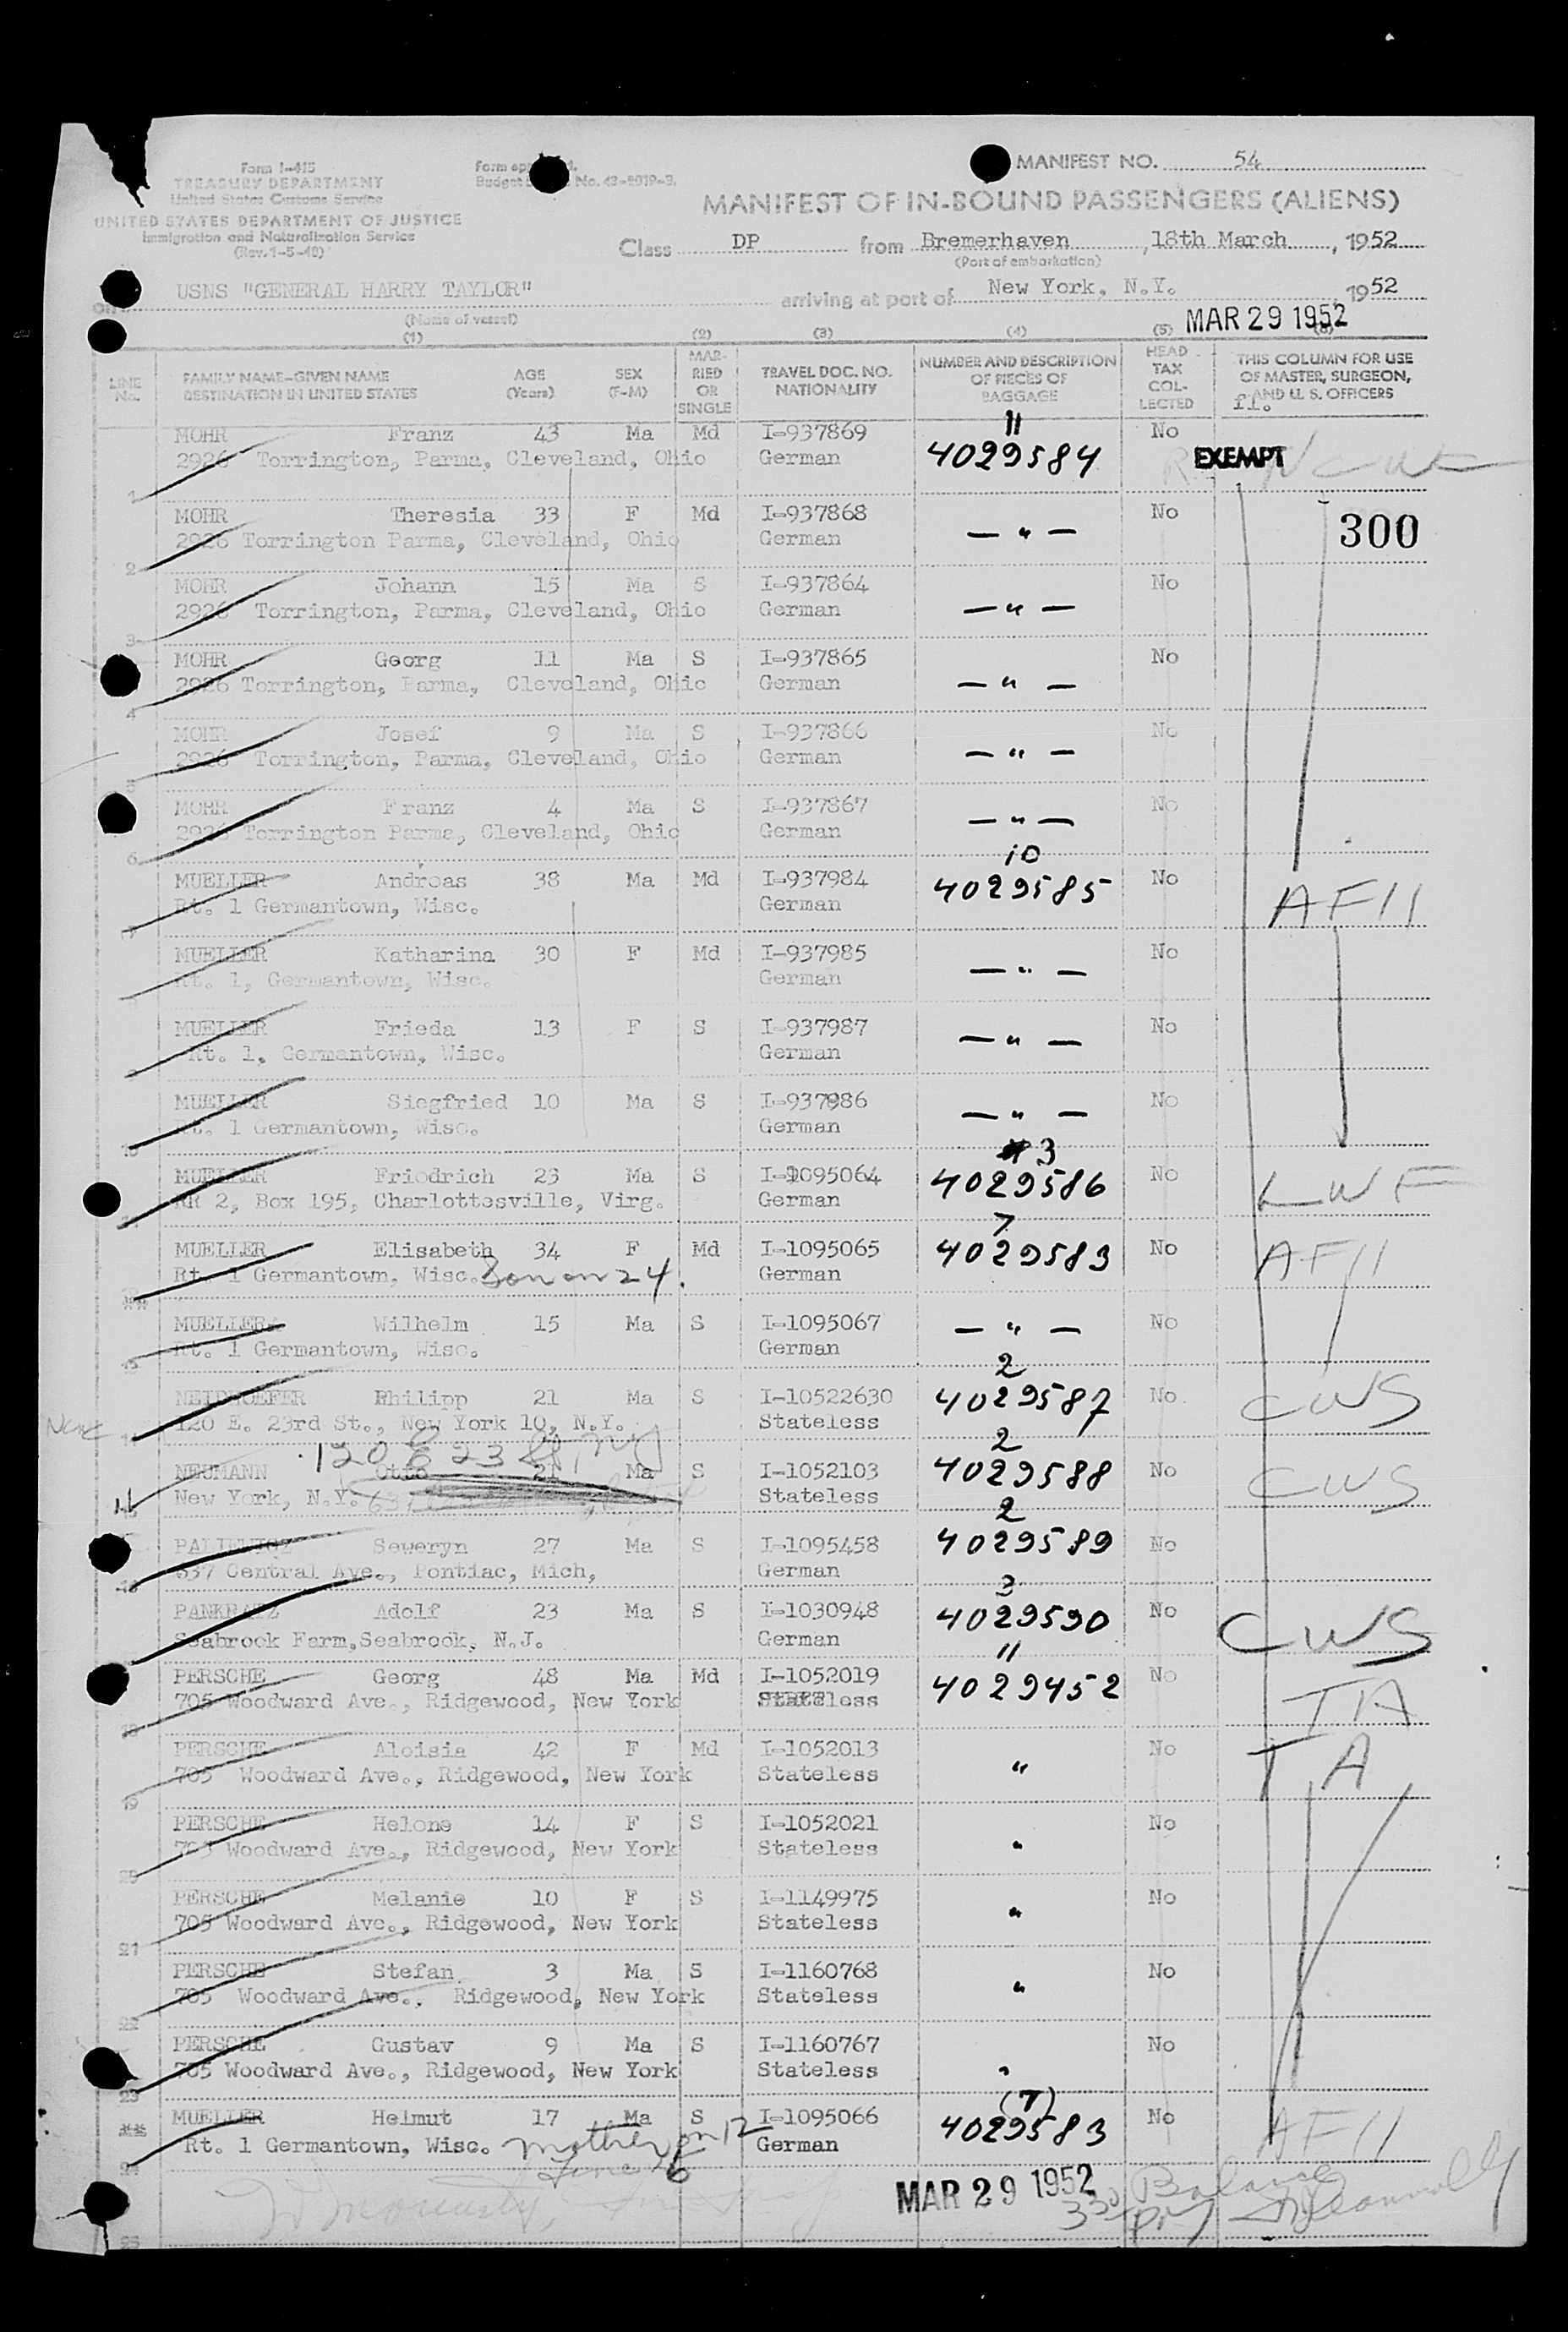 Form I-415
TREASURY DEPARTMENT
United States Customs Service
UNITED STATES DEPARTMENT OF JUSTICE
Immigration and Naturalization Service
(Rev. 1-5-48)
Form
Budget No. 43-R019-3.
MANIFEST NO. 54
MANIFEST OF IN-BOUND PASSENGERS (ALIENS)
Class DP from Bremerhaven, 18th March, 1952
(Port of embarkation)
USNS "GENERAL HARRY TAYLOR" arriving at port of New York, N.Y. 1952
(Name of vessel)
MAR 29 1952
(1) (2) (3) (4) (5) (6)
LINE No.
FAMILY NAME-GIVEN NAME
DESTINATION IN UNITED STATES
AGE (Years)
SEX (F-M)
MARRIED OR SINGLE
TRAVEL DOC. NO. NATIONALITY
NUMBER AND DESCRIPTION OF PIECES OF BAGGAGE
HEAD TAX COLLECTED
THIS COLUMN FOR USE OF MASTER, SURGEON, AND U. S. OFFICERS
11
MOHR Franz 43 Ma Md I-937869 4029584 No EXEMPT NCWC
2926 Torrington, Parma, Cleveland, Ohio German
1
MOHR Theresia 33 F Md I-937868 — " — No 300
2926 Torrington Parma, Cleveland, Ohio German
2
MOHR Johann 15 Ma S I-937864 — " — No
2926 Torrington, Parma, Cleveland, Ohio German
3
MOHR Georg 11 Ma S I-937865 — " — No
2926 Torrington, Parma, Cleveland, Ohio German
4
MOHR Josef 9 Ma S I-937866 — " — No
2926 Torrington, Parma, Cleveland, Ohio German
5
MOHR Franz 4 Ma S I-937867 — " — No
2926 Torrington Parma, Cleveland, Ohio German
6
10
MUELLER Andreas 38 Ma Md I-937984 4029585 No AFII
Rt. 1 Germantown, Wisc. German
MUELLER Katharina 30 F Md I-937985 — " — No
Rt. 1, Germantown, Wisc. German
MUELLER Frieda 13 F S I-937987 — " — No
Rt. 1, Germantown, Wisc. German
MUELLER Siegfried 10 Ma S I-937986 — " — No
Rt. 1 Germantown, Wisc. German
10
3
MUELLER Friedrich 23 Ma S I-1095064 4029586 No LWF
RR 2, Box 195, Charlottesville, Virg. German
7
MUELLER Elisabeth 34 F Md I-1095065 4029583 No AFII
Rt. 1 Germantown, Wisc. Son on 24. German
MUELLER Wilhelm 15 Ma S I-1095067 — " — No
Rt. 1 Germantown, Wisc. German
2
NEIDHOEFER Philipp 21 Ma S I-10522630 4029587 No CWS
120 E. 23rd St., New York 10, N.Y. Stateless
120 E 23 St, NY
2
NEUMANN Otto 21 Ma S I-1052103 4029588 No CWS
New York, N.Y. Stateless
2
PALIEWICZ Seweryn 27 Ma S I-1095458 4029589 No
637 Central Ave., Pontiac, Mich, German
16
PANKRATZ Adolf 23 Ma S I-1030948 4029590 No CWS
Seabrook Farm, Seabrook, N.J. German
11
PERSCHE Georg 48 Ma Md I-1052019 4029452 No TA
705 Woodward Ave., Ridgewood, New York Stateless
18
PERSCHE Aloisia 42 F Md I-1052013 " No TA
705 Woodward Ave., Ridgewood, New York Stateless
19
PERSCHE Helene 14 F S I-1052021 " No
705 Woodward Ave., Ridgewood, New York Stateless
20
PERSCHE Melanie 10 F S I-1149975 " No
705 Woodward Ave., Ridgewood, New York Stateless
21
PERSCHE Stefan 3 Ma S I-1160768 " No
705 Woodward Ave., Ridgewood, New York Stateless
22
PERSCHE Gustav 9 Ma S I-1160767 " No
705 Woodward Ave., Ridgewood, New York Stateless
23
(7)
MUELLER Helmut 17 Ma S I-1095066 4029583 No AFII
Rt. 1 Germantown, Wisc. mother on 12 German
24
MAR 29 1952
Balance
25